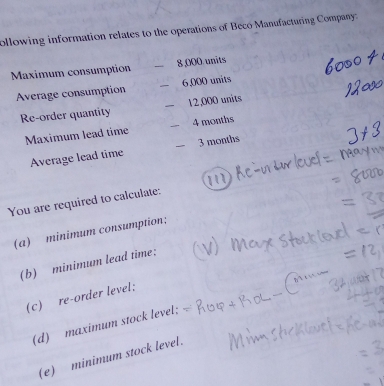 ollowing information relates to the operations of Beco Manufacturing Company:
Maximum consumption — 8,000 units
Average consumption — 6,000 units
Re-order quantity — 12,000 units
Maximum lead time — 4 months
Average lead time — 3 months
6000 +
12000
3+3
You are required to calculate:
(a) minimum consumption;
(b) minimum lead time:
(c) re-order level;
(d) maximum stock level: = ROQ + ROL -
(e) minimum stock level.
(III) Re-order level =
= 8000
= 32
(V) Max stock level =
= 12,